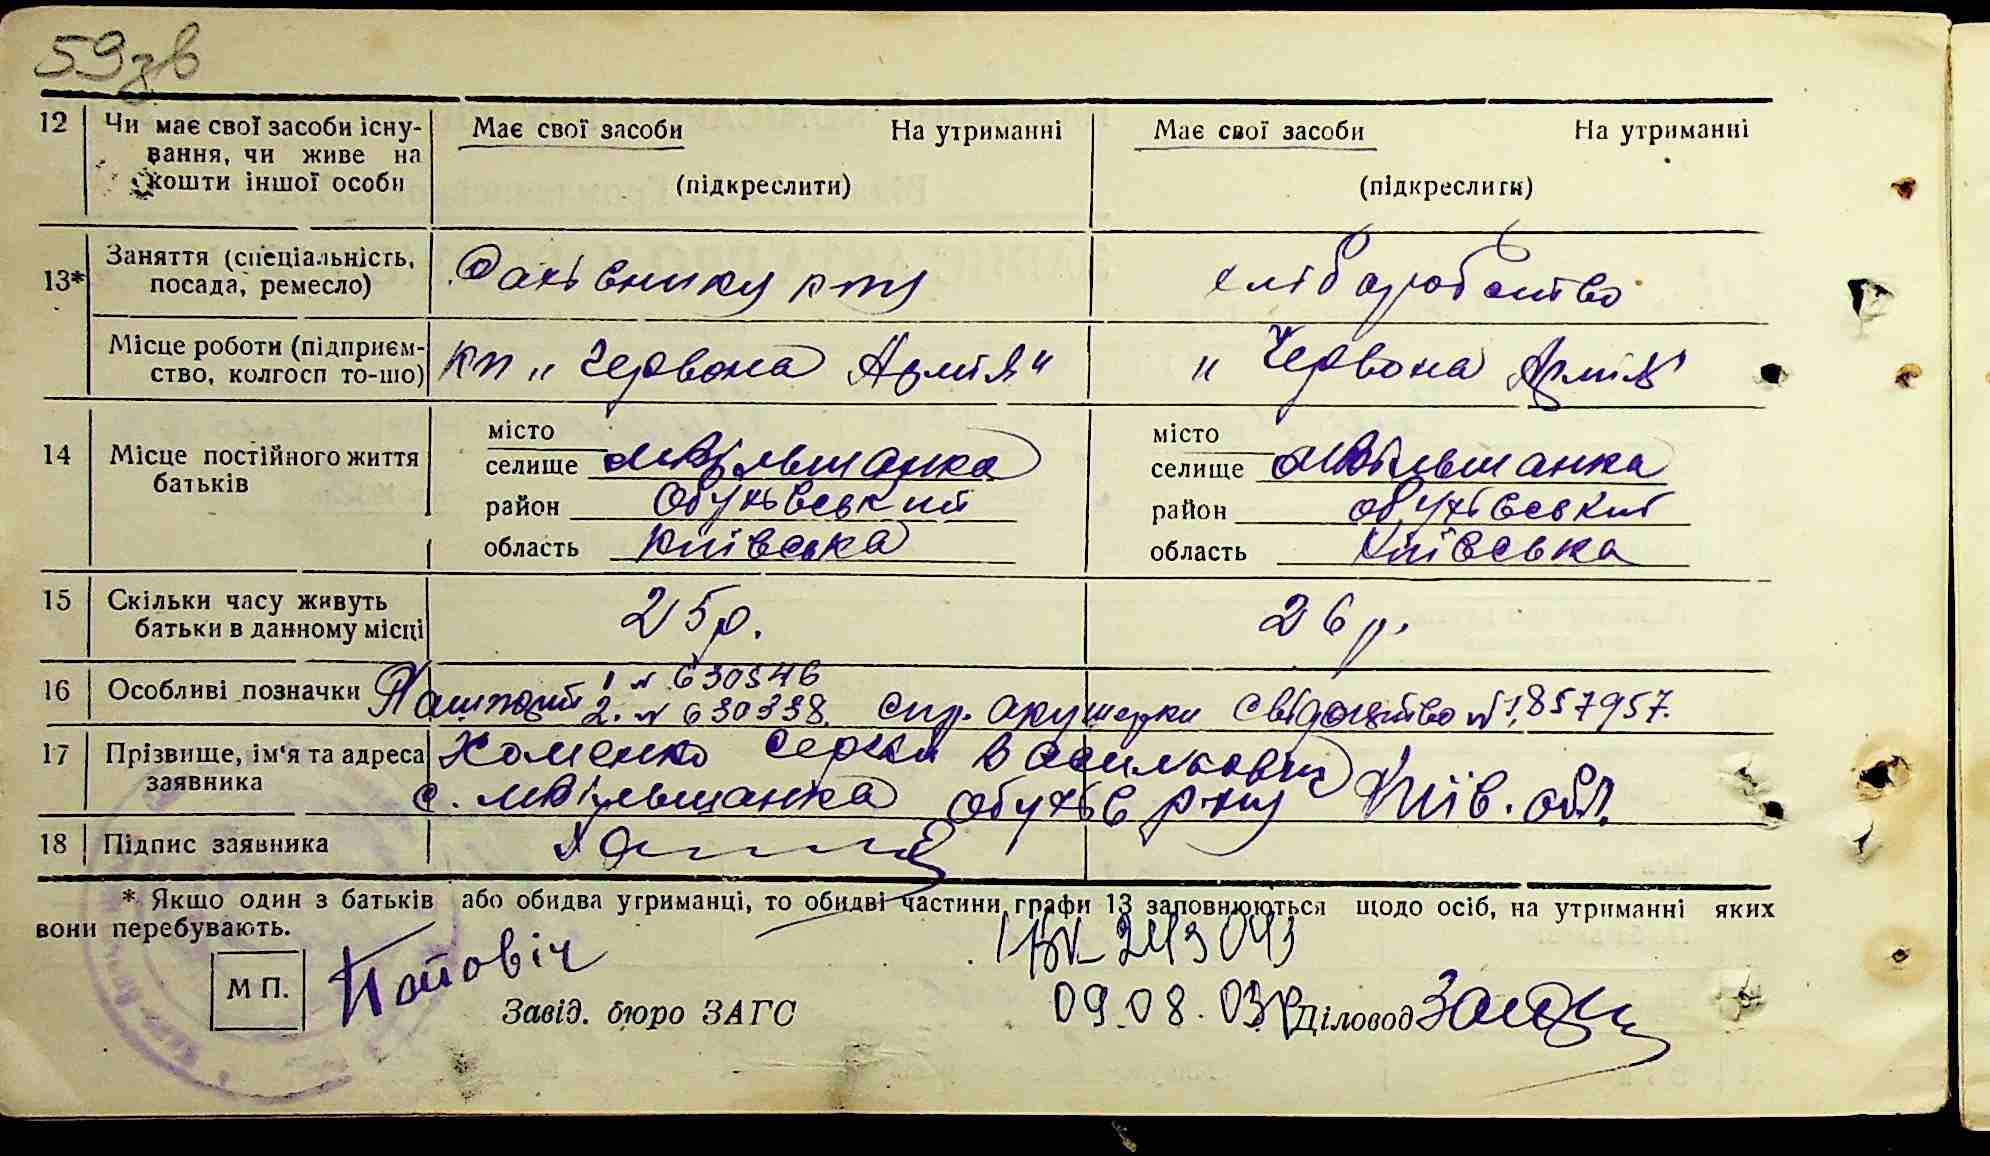 59зв
12 Чи має свої засоби існу- Має свої засоби На утриманні Має свої засоби На утриманні
вання, чи живе на
кошти іншої особи (підкреслити) (підкреслити)
13* Заняття (спеціальність, хліборобство
посада, ремесло)
Місце роботи (підприєм- кп „ Червона Армія" „ Червона Армія"
ство, колгосп то-що)
місто місто
14 Місце постійного життя селище Мвільшанка селище Мвільшанка
батьків район Обухівський район Обухівський
область Київська область Київська
15 Скільки часу живуть 25 р. 26 р.
батьки в данному місці
16 Особливі позначки Пашпорт 1 № 630546
2. № 630338. спр. акушерки свідоцтво №1,857957.
17 Прізвище, ім'я та адреса Хоменко Василькович
заявника с. Мвільшанка Обухів р-ну Київ. обл.
18 Підпис заявника
* Якщо один з батьків або обидва утриманці, то обидві частини графи 13 заповнюються щодо осіб, на утриманні яких
вони перебувають.
І-БК 243093
М П. Попович Завід. бюро ЗАГС 09.08.03р Діловод